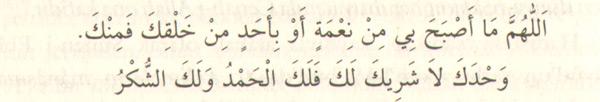 اَللّٰهُمَّ مَا أَصْبَحَ بِي مِنْ نَعْمَةٍ أَوْ بِأَحَدٍ مِنْ خَلْقِكَ فَمِنْكَ.
وَحْدَكَ لاَ شَرِيكَ لَكَ فَلَكَ الْحَمْدُ وَلَكَ الشُّكْرُ